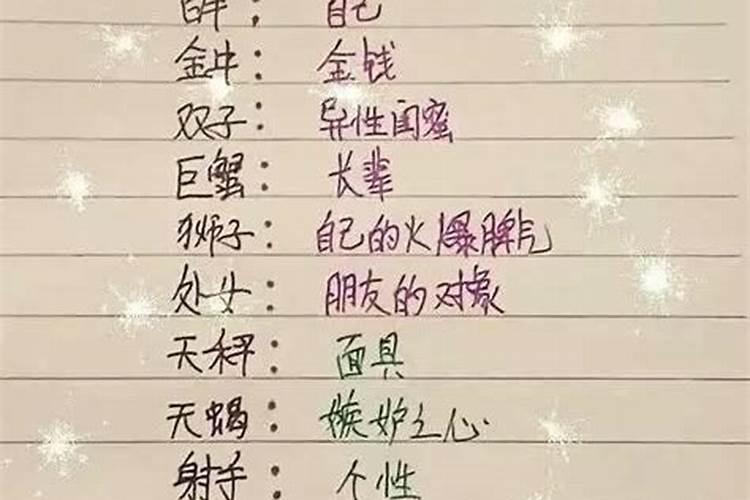 白羊：自己
金牛：金钱
双子：异性闺蜜
巨蟹：长辈
狮子：自己的火爆脾气
处女：朋友的对象
天秤：面具
天蝎：嫉妒之心
射手：个性